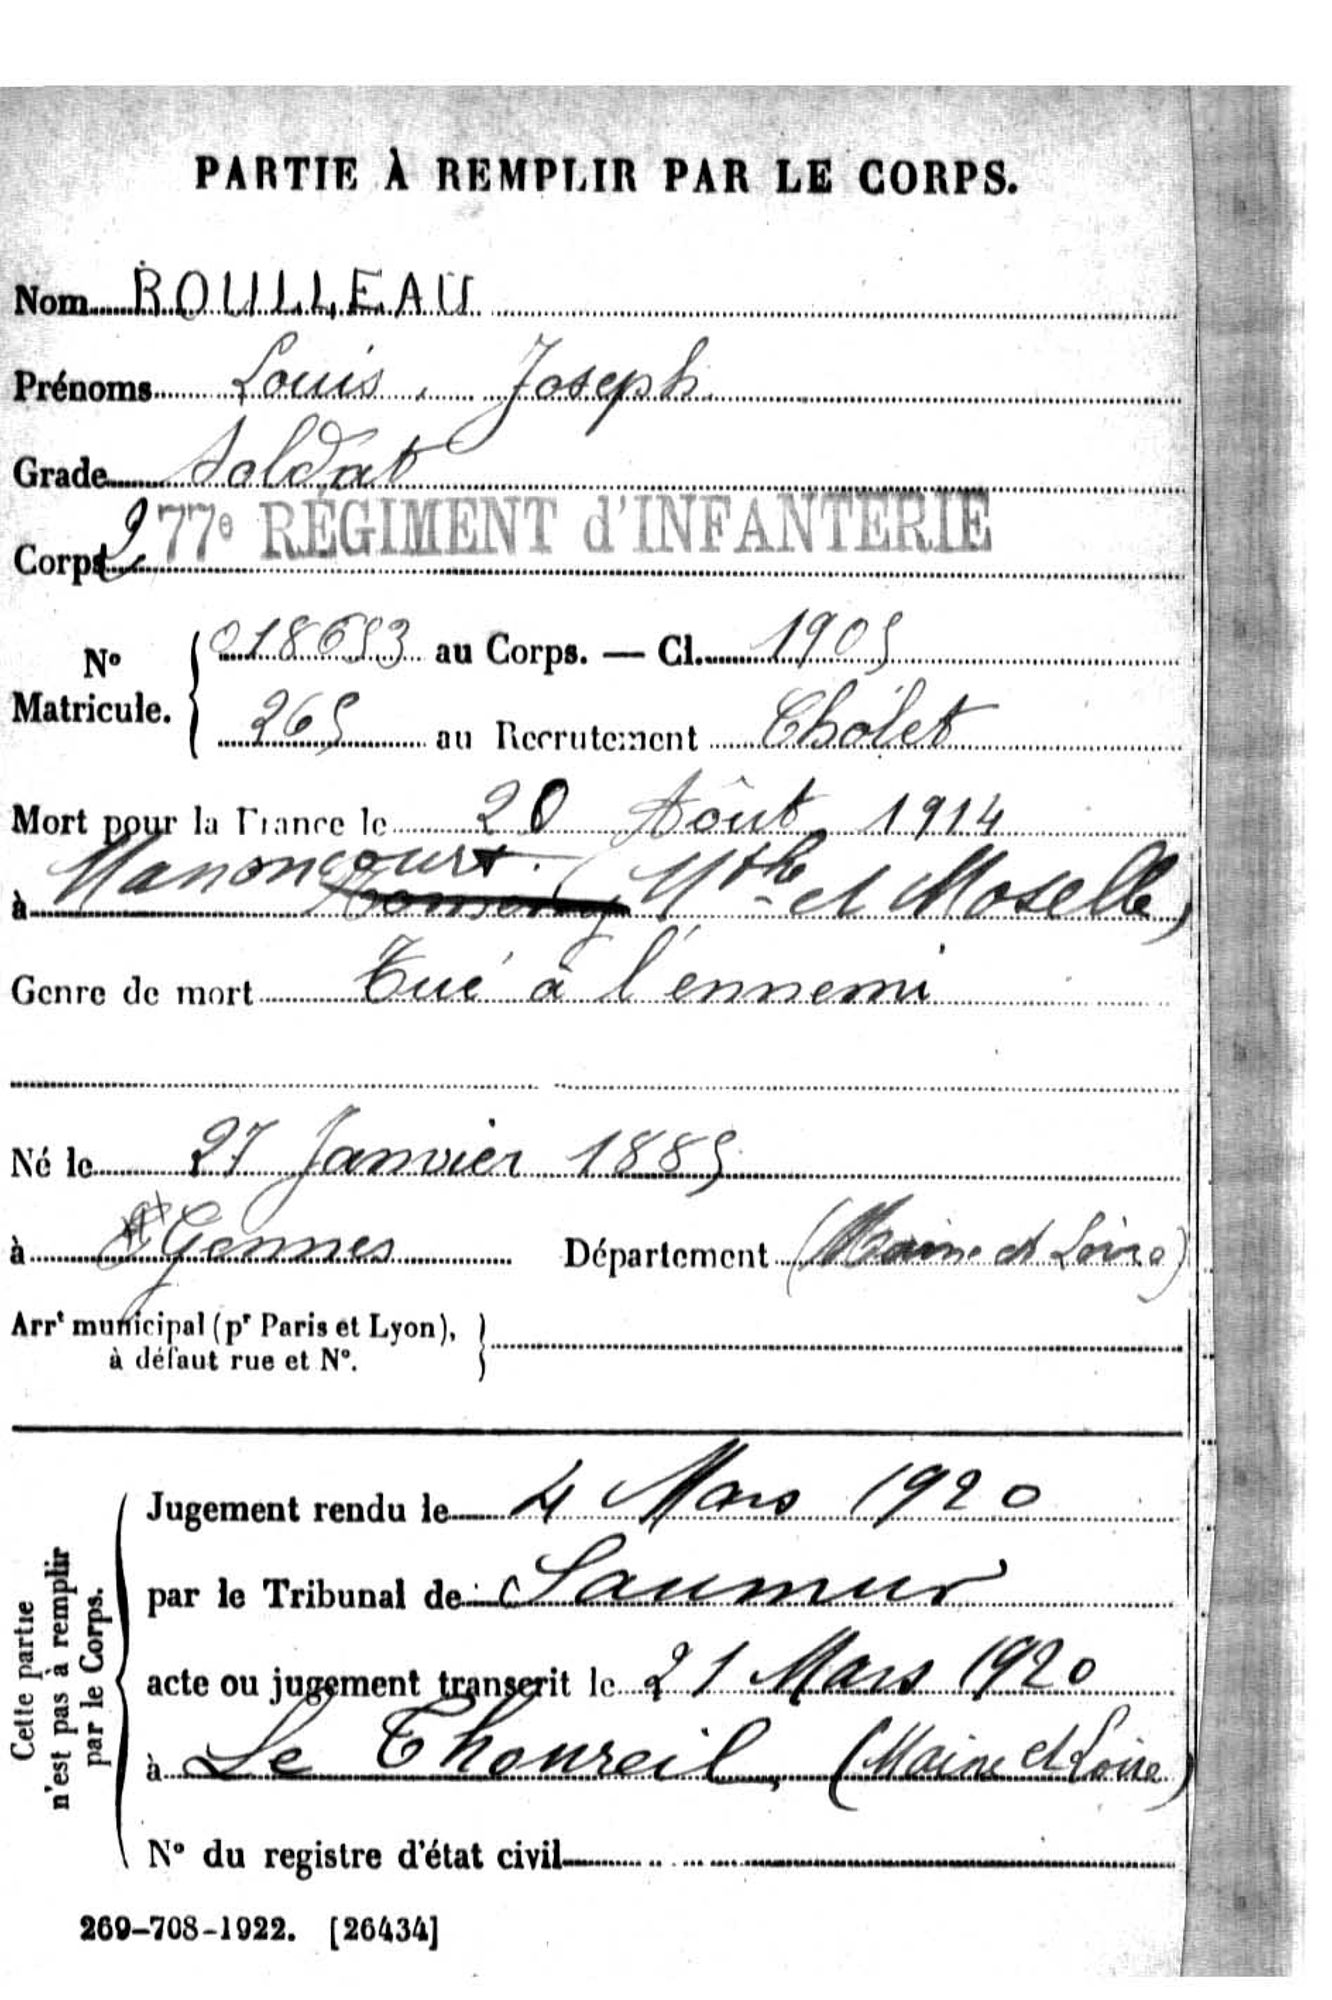 PARTIE À REMPLIR PAR LE CORPS.
Nom ROULLEAU
Prénoms Louis, Joseph
Grade Soldat
Corps 277e RÉGIMENT d'INFANTERIE
No Matricule. 018653 au Corps. — Cl. 1905
265 au Recrutement Cholet
Mort pour la France le 20 Août 1914
à Manoncourt. Nomeny (Mthe et Moselle)
Genre de mort Tué à l'ennemi
Né le 27 Janvier 1885
à Gennes Département (Maine et Loire)
Arrt municipal (pr Paris et Lyon),
à défaut rue et No.
Cette partie
n'est pas à remplir
par le Corps.
Jugement rendu le 4 Mars 1920
par le Tribunal de Saumur
acte ou jugement transcrit le 21 Mars 1920
à Le Thoureil, (Maine et Loire)
No du registre d'état civil
269-708-1922. [26434]